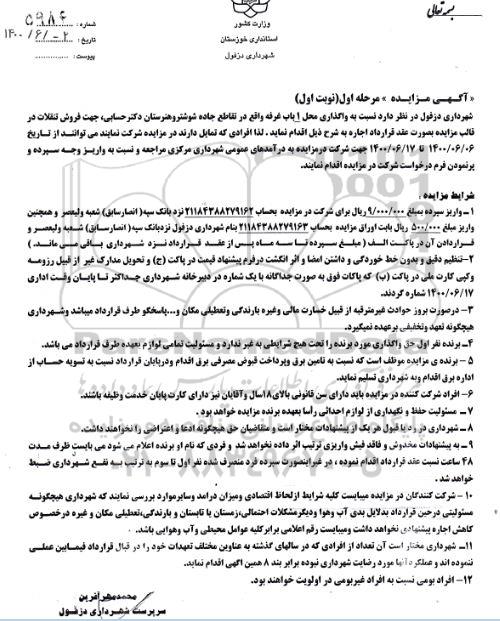 بسمه تعالی
وزارت کشور
استانداری خوزستان
شهرداری دزفول
شماره : ۵۹۸۴
تاریخ : ۱۴۰۰/۶/-۲
پیوست :
« آگهـی مـزایـده » مرحله اول(نوبت اول)
شهرداری دزفول در نظر دارد نسبت به واگذاری محل ۱ باب غرفه واقع در تقاطع جاده شوشتروهنرستان دکترحسابی، جهت فروش تنقلات در
قالب مزایده بصورت عقد قرارداد اجاره به شرح ذیل اقدام نماید . لذا افرادی که تمایل دارند در مزایده شرکت نمایند می توانند از تاریخ
۱۴۰۰/۰۶/۰۶ تا ۱۴۰۰/۰۶/۱۷ جهت شرکت درمزایده به درآمدهای عمومی شهرداری مرکزی مراجعه و نسبت به واریـز وجـه سپرده و
پرنمودن فرم درخواست شرکت در مزایده اقدام نمایند.
شرایط مزایده .
۱ـ واریـز سپرده بمبلغ ۹/۰۰۰/۰۰۰ ریال برای شرکت در مزایده بحساب ۲۱۱۸۴۳۸۸۲۷۹۱۶۲ نزد بانک سپه( انصارسابق) شعبه ولیعصر و همچنین
واریز مبلغ ۵۰۰/۰۰۰ ریال بابت اوراق مزایده بحساب ۲۱۱۸۴۳۸۸۲۷۹۱۶۳ بنام شهرداری دزفول نزدبانک سپه( انصارسابق) شعبه ولیعصر و
قراردادن آن در پـاکـت الـف ( مبلـغ سپـرده تـا سـه مـاه پـس از عقـد قـرارداد نـزد شهـرداری بـاقـی مـی مانـد. )
۲-تنظیم دقیق و بدون خط خوردگی و داشتن امضا و اثر انگشت درفرم پیشنهاد قیمت در پاکت (ج) و تحویل مدارک غیر از قبیل رزومه
وکپی کارت ملی در پاکت (ب) که پاکات فوق به صورت جداگانه با یک شماره در دبیرخانه شهرداری حداکثر تـا پایـان وقـت اداری
۱۴۰۰/۰۶/۱۷ شماره گردند.
۳- درصورت بروز حوادث غیرمترقبه از قبیل خسارت مالی وغیره بارندگی وتعطیلی مکان و...پاسخگو طرف قرارداد میباشد وشهرداری
هیچگونه تعهد وتخفیفی برعهده نمیگیرد.
۴- برنده نفر اول حق واگذاری مورد برنده را تحت هیچ شرایطی به غیر ندارد و مسئولیت تمامی لوازم بعهده طرف قرارداد می باشد.
۵- برنده ی مزایده موظف است که نسبت به تامین برق وپرداخت قبوض مصرفی برق اقدام ودرپایان قرارداد نسبت به تسویه حساب از
اداره برق اقدام وبه شهرداری تسلیم نماید.
۶- افراد شرکت کننده در مزایده باید دارای سن قانونی بالای۱۸سال وآقایان نیز دارای کارت پایان خدمت وظیفه باشند.
۷ – مسئولیت حفظ و نگهداری از لوازم احداثی رأسا بعهده برنده مزایده خواهد بود .
۸ – شهرداری در رد یا قبول هر یک از پیشنهادات مختار است و متقاضیان حق هیچگونه ادعا و اعتراضی را نخواهند داشت.
۹ – به پیشنهادات مخدوش و فاقد فیش واریزی ترتیب اثر داده نخواهد شد و فردی که نام او برنده اعلام می شود می بایست ظرف مدت
۴۸ ساعت نسبت عقد قرارداد اقدام نموده ، در غیر اینصورت سپرده فرد منصرف شده نفر اول تا سوم به ترتیب به نفـع شهـرداری ضبـط
خواهد شد .
۱۰ - شرکت کنندگان در مزایده میبایست کلیه شرایط ازلحاظ اقتصادی ومیزان درآمد وسایرموارد بررسی نمایند که شهرداری هیچگونه
مسئولیتی درحین قرارداد بدلایل بدی آب وهوا ودیگرمشکلات احتمالی،زمستان یا تابستان و بارندگی،تعطیلی مکان و غیره درخصوص
کاهش اجاره پیشنهادی نخواهد داشت ومیبایست رقم اعلامی برابرکلیه عوامل محیطی وآب وهوایی باشد.
۱۱ـ شهرداری مختار است آن تعداد از افرادی که در سالهای گذشته به عناوین مختلف تعهدات خود را در قبال قرارداد فیمابین عملـی
ننموده اند و عملکرد آنها مورد رضایت شهرداری نبوده برابر بند ۸ همین آگهی اقدام نماید.
۱۲- افراد بومی نسبت به افراد غیربومی در اولویت خواهند بود.
محمدمهرآفرین
سرپرست شهرداری دزفول